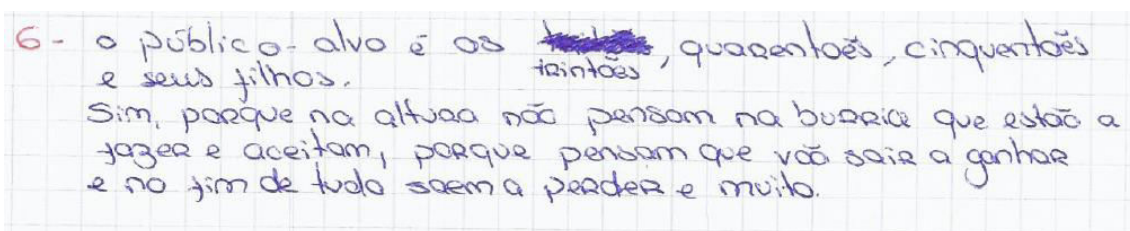 6- o público-alvo é os trintões, quarentões, cinquentões
e seus filhos.
Sim, porque na altura não pensam na burrice que estão a
fazer e aceitam, porque pensam que vão sair a ganhar
e no fim de tudo saem a perder e muito.